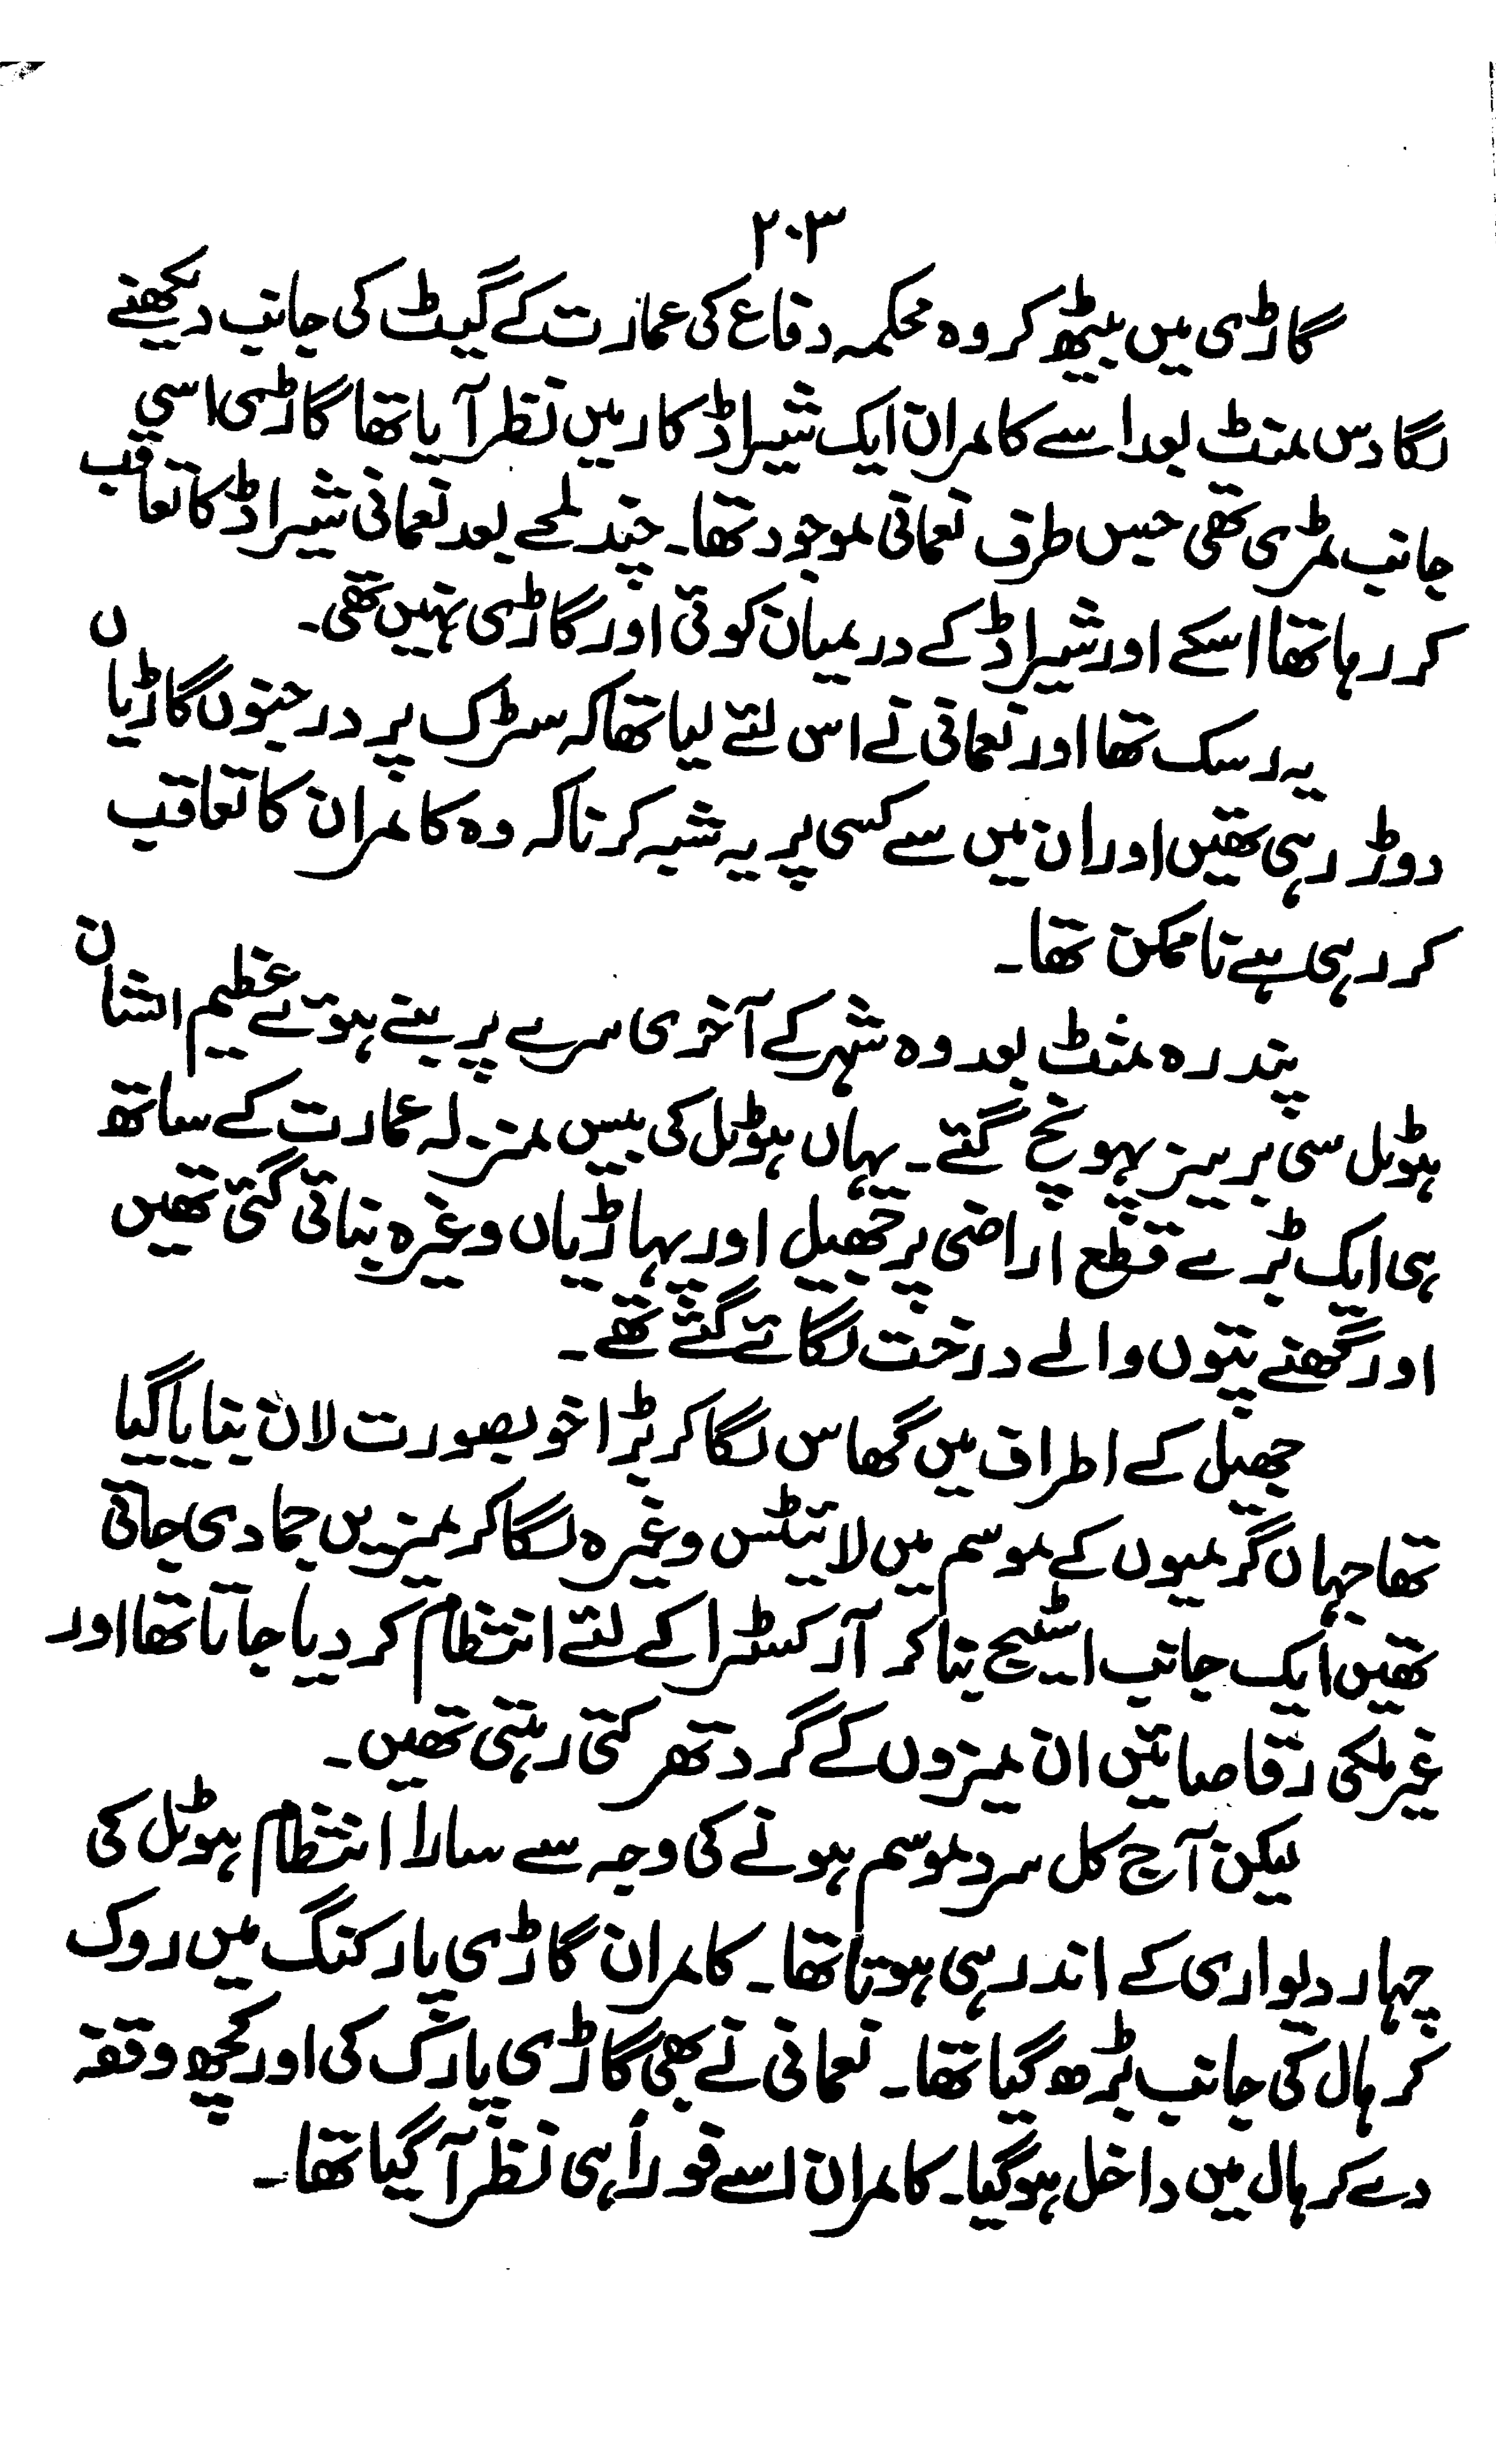 ۲۰۳
گاڑی میں بیٹھ کر وہ محکمہ دفاع کی عمارت کے گیٹ کی جانب دیکھنے
لگا دس منٹ بعد اسے کامران ایک شیراڈ کار میں نظر آیا تھا گاڑی اسی
جانب مڑی تھی جس طرف نعمانی موجود تھا۔ چند لمحے بعد نعمانی شیراڈ کا تعاقب
کر رہا تھا اسکے اور شیراڈ کے درمیان کوئی اور گاڑی نہیں تھی۔
یہ رسک تھا اور نعمانی نے اس لئے لیا تھا کہ سڑک پر درجنوں گاڑیاں
دوڑ رہی تھیں اور ان میں سے کسی پر یہ شبہ کرنا کہ وہ کامران کا تعاقب
کر رہی ہے ناممکن تھا۔
پندرہ منٹ بعد وہ شہر کے آخری سرے پر بنے ہوئے عظیم الشان
ہوٹل سی بریز پہونچ گئے۔ یہاں ہوٹل کی بیس منزلہ عمارت کے ساتھ
ہی ایک بڑے قطع اراضی پر جھیل اور پہاڑیاں وغیرہ بنائی گئی تھیں
اور گھنے پتوں والے درخت لگائے گئے تھے۔
جھیل کے اطراف میں گھاس لگا کر بڑا خوبصورت لان بنایا گیا
تھا جہاں گرمیوں کے موسم میں لائیٹس وغیرہ لگا کر میزیں جما دی جاتی
تھیں ایک جانب اسٹیج بنا کر آرکسٹرا کے لئے انتظام کر دیا جاتا تھا اور
غیر ملکی رقاصائیں ان میزوں کے گرد تھرکتی رہتی تھیں۔
لیکن آج کل سرد موسم ہونے کی وجہ سے سارا انتظام ہوٹل کی
چہار دیواری کے اندر ہی ہوتا تھا۔ کامران گاڑی پارکنگ میں روک
کر ہال کی جانب بڑھ گیا تھا۔ نعمانی نے بھی گاڑی پارک کی اور کچھ وقفہ
دے کر ہال میں داخل ہو گیا۔ کامران اسے فوراً ہی نظر آ گیا تھا۔